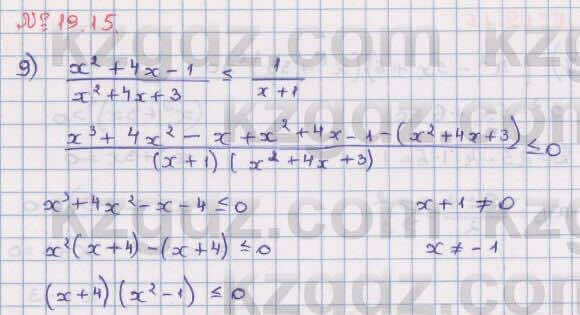 № 19.15.
9) (x² + 4x - 1)/(x² + 4x + 3) ≤ 1/(x + 1)
(x³ + 4x² - x + x² + 4x - 1 - (x² + 4x + 3))/((x + 1)(x² + 4x + 3)) ≤ 0
x³ + 4x² - x - 4 ≤ 0 x + 1 ≠ 0
x²(x + 4) - (x + 4) ≤ 0 x ≠ -1
(x + 4)(x² - 1) ≤ 0
kzgdz.com